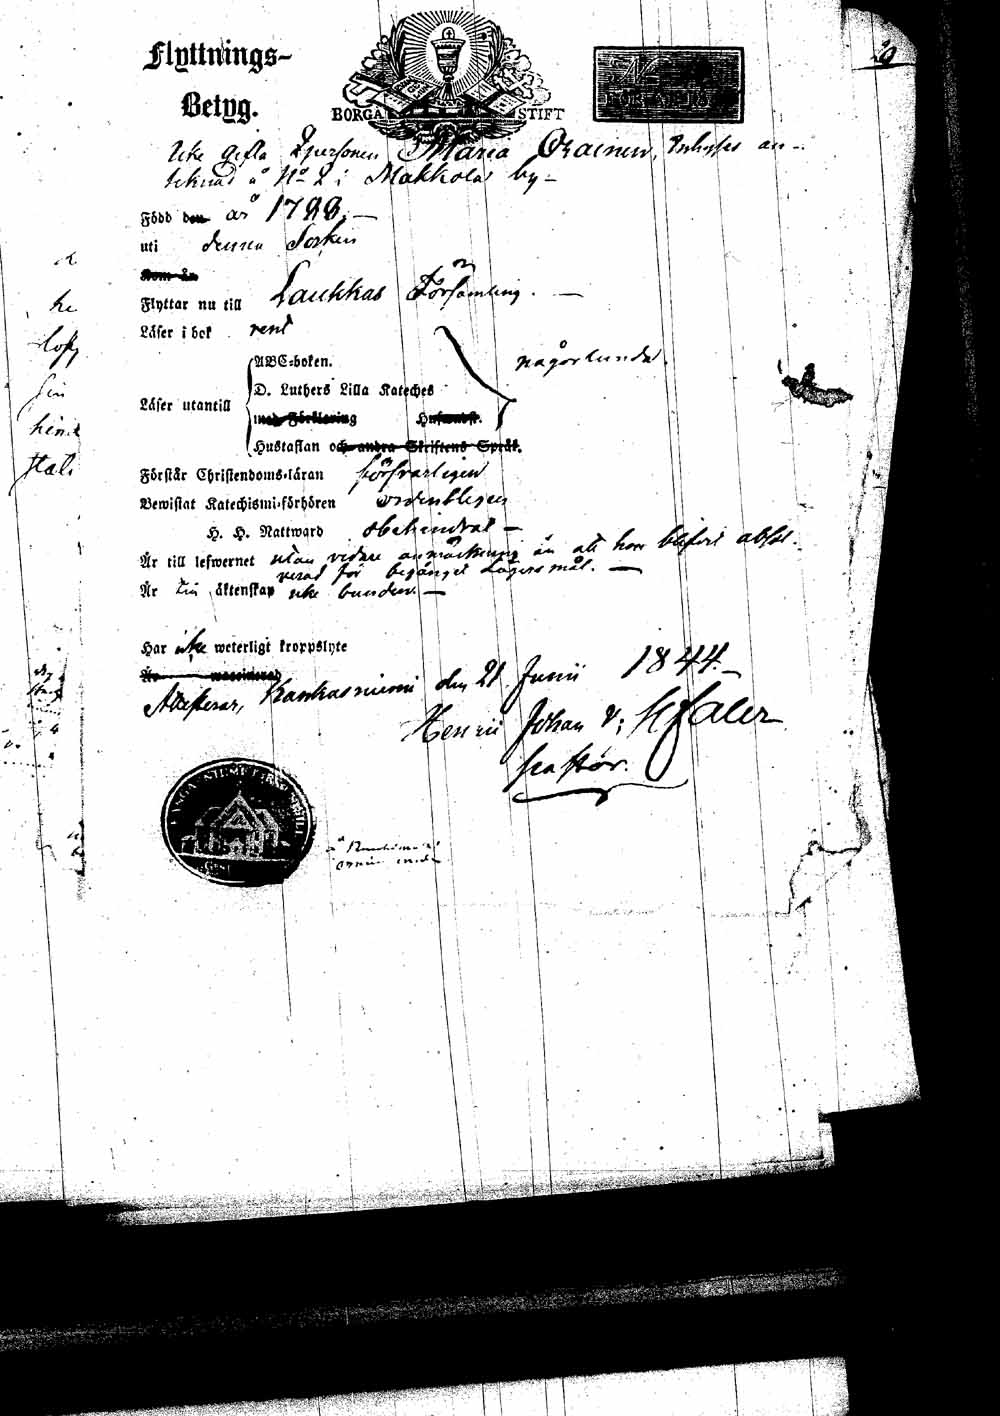 20
Flyttnings-
Betyg.
BORGÅ STIFT
Icke gifta Qpersonen Maria Oxainen, Inhyses an-
teknad å No 2 i Makkola by -
Född den år 1788. -
uti denna Sockn
Kom år
Flyttar nu till Laukkas Församling. -
Läser i bok rent
Läser utantill
ABC-boken.
D. Luthers Lilla Kateches
med Förklaring
Hustaflan och andra Skriftens Språk.
någorlunda.
Förstår Christendoms-läran försvarligen
Bewistat Katechismi-förhören ordentligen
H. H. Nattward obehindrat -
Är till lefwernet utan vidare anmärkning än att hon blifvit absol-
verad för begånget Lägersmål. -
Är till äktenskap icke bunden. -
Har icke weterligt kroppslyte
Är waccinerad
Attesterar, Kankasniemi den 21 Junii 1844. -
Henric Johan
Pastor.